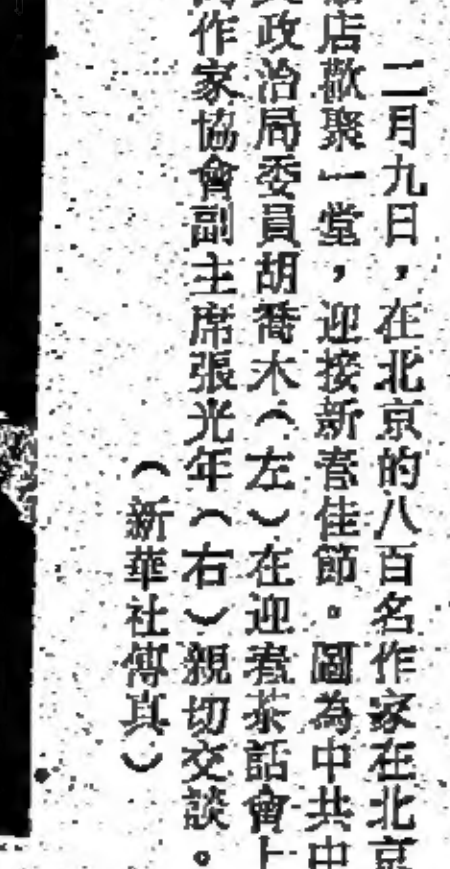 二月九日，在北京的八百名作家在北京
店歡聚一堂，迎接新春佳節。圖為中共中
政治局委員胡喬木（左）在迎春茶話會上
作家協會副主席張光年（右）親切交談。
（新華社傳真）